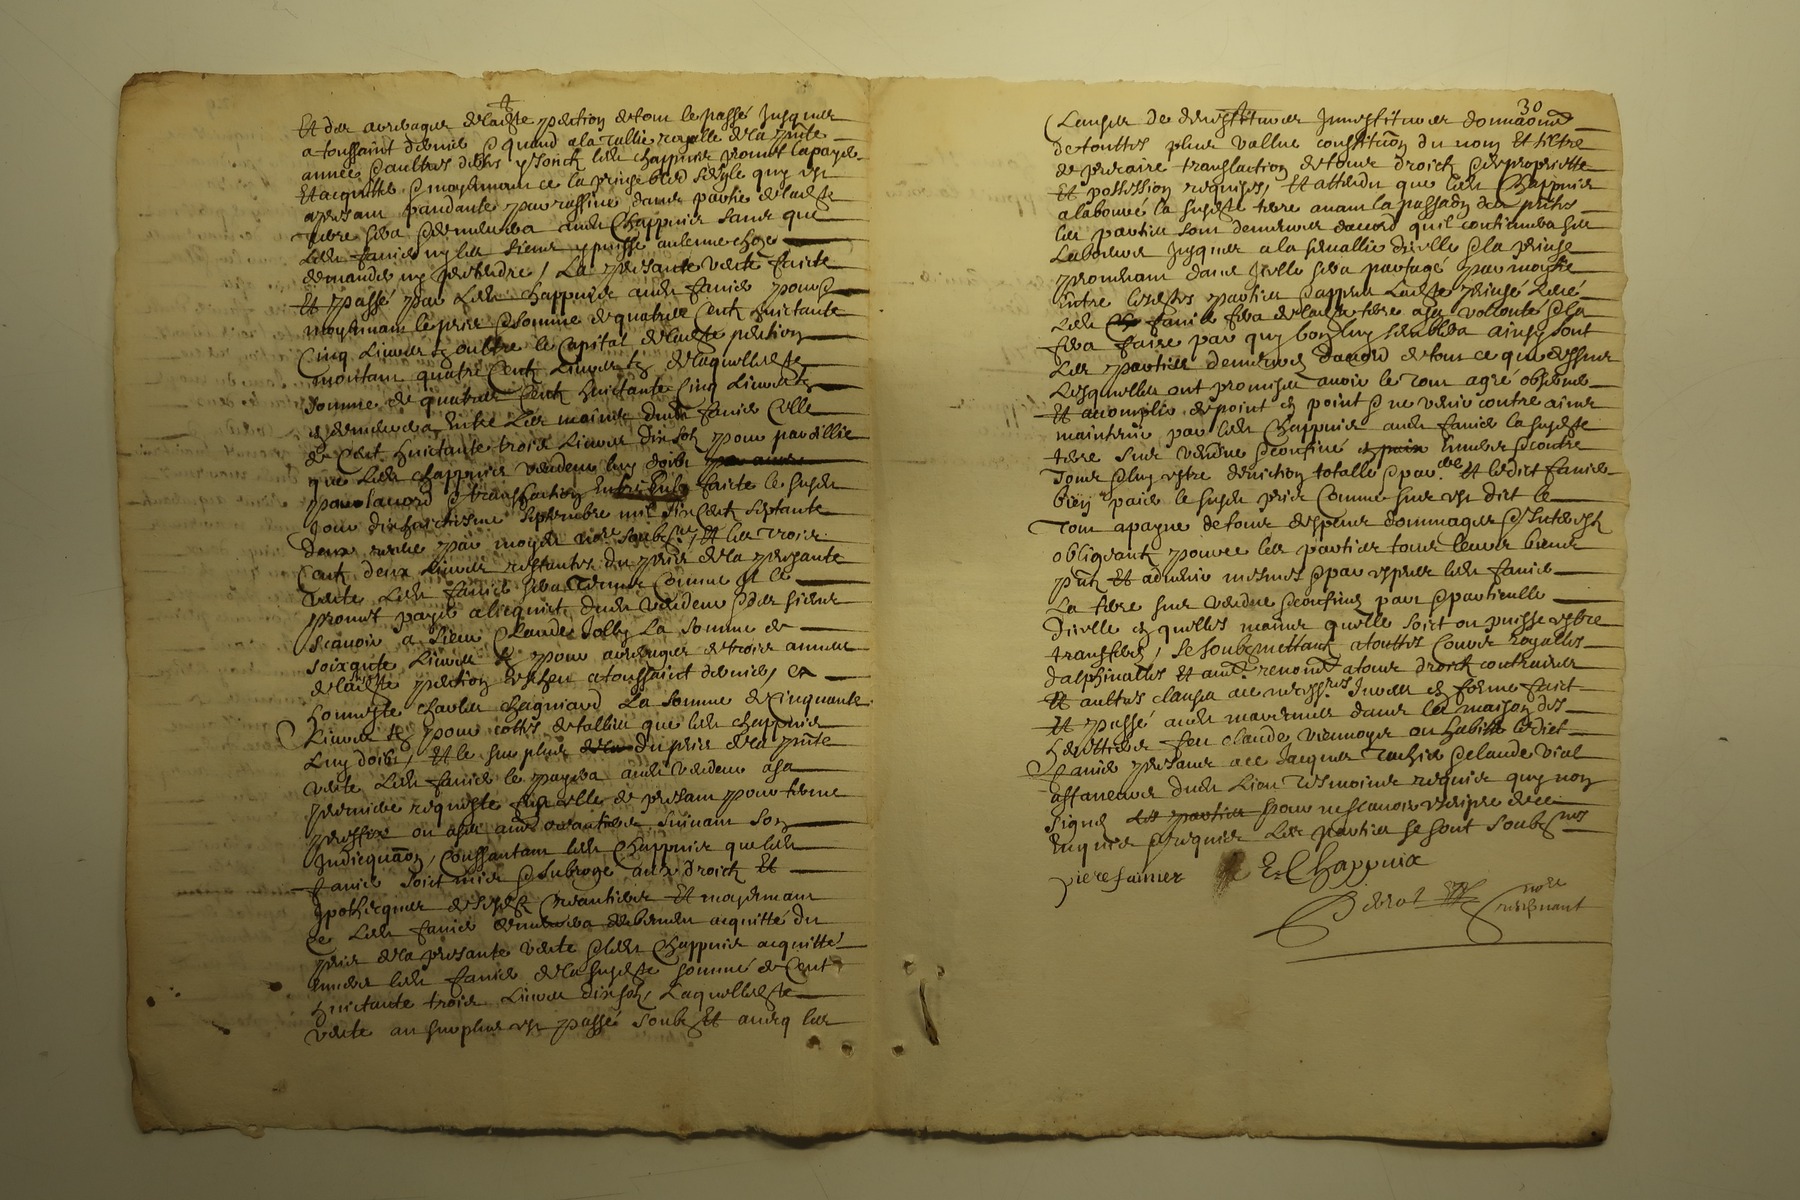 Et des arrerages de ladte pention de tout le passé Jusques
a toussaint dernier & quand a la taillie royalle de la pnte
année & aultres debtz ledt Chappuis promet la payer
Et acquitter & moyennant ce la prinse bled seigle quy est
apresant pandante par rassine dans partie de ladte
terre sera & demeurera audt Chappuis sans que
ledt fanier ny les siens y puisse aulcune chose
demander ny pretendre / La presante vente faicte
Et passé par Ledt Chappuis audt fanier pour &
moyennant le prix & somme de quatre Centz huictante
Cinq Livres tz oultre le Capital de ladte pention
montant quatre Centz Livres tz de laquelle dte
somme de quatre Centz huictante Cinq Livres tz
en demeurera entre Les mains dudt fanier Celle
de Cent huictante trois Livres dix solz pour pareillie
que Ledt Chappuis vendeur luy doibt
par lacord & transaction faicte le susdt
Jour dixhuictiesme septembre mil six Centz septante
deux receue par moydt nore soubzné Et les trois
Centz deux Livres restantes du prix de la presante
vente Ledt fanier sera Tenus Comme Il le
promet payer a lacquict dudt vendeur & des siens
scavoir a sieur Claude Jolly La Somme de
soixante Livres tz pour arrerages de trois annees
de ladte pention escheu a toussaint dernier, et
honneste Charles Chagniard La somme de Cinquante
Livres tz pour cottes de tallies que ledt Chappuis
Luy doibt, Et le surplus du prix de la pnte
vente Ledt fanier le payera audt vendeur a sa
premiere requeste sur elle de presant pour terme
prefix ou a ses aues creantiers suivant son
Indicquaon, Conssantant ledt Chappuis que ledt
fanier soict mis & subrogé aux droictz Et
Ipothecques desdtz Creantiers Et moyennant
ce Ledt fanier demeurera acquitté du
prix de la presante vente & ledt Chappuis acquitté
envers ledt fanier de la susdte somme de Cent
huictante trois Livres dix solz, Laquelle dte
vente au surplus est passé soubz Et avecq les
30
Clauses de devestitures Investitures donnaonnd
de touttes plus vallue constituon du nom Et tiltre
de precaire translaction de tous droictz & de proprietté
Et possession requises, Et attendu que ledt Chappuis
a labouré la susdte terre avant la passaon des pntes
les parties sont demeurees dacord quil continuera sur
Labourer Jusques a la semallie dicelle & la prinse
provenant dans Icelle sera partagé par moytié
entre lesdtes parties & appres ladte prinse Levé
Ledt fanier sera de ladte terre a sa vollonté & la
fera faire par quy bon luy semblera ainsy sont
Les parties demeurees dacord de tout ce que dessus
Lesquelles ont promises avoir le tout agré observer
Et acomplir de point en point & ne venir contre ains
maintenir par ledt Chappuis audt fanier la susdte
terre sus vendue & confiné envers & contre
Tous & luy estre deviction totalle & parelle Et ledict fanier
bien paier le susdt prix Comme sus est dict le
Tout a payne de tous despens dommages & Interestz
obligeantz pource les parties tous leurs biens
pntz Et advenir mesmes & par expres ledt fanier
La terre sus vendue & confinee part & particulle
dicelle en quelles mains quelle soict ou puisse estre
transferé, se soubzmettant a touttes Cours royalles
dalphinalles Et aues renonent a tous droictz contraires
Et aultres clauses aec necessres Jurees en forme faict
Et passé audt marennes dans la maison des
herittiers feu Claude viennoys ou habitte ledict
fanier presans aec Jacques & Claude vial
astaneurs dudt Lieu Tesmoins requis quy non
signé pour ne scavoir escripre de ce
Enquis & requis Les parties se sont soubznés
piere fanier E. Chappuis
Perrot nore recepvant